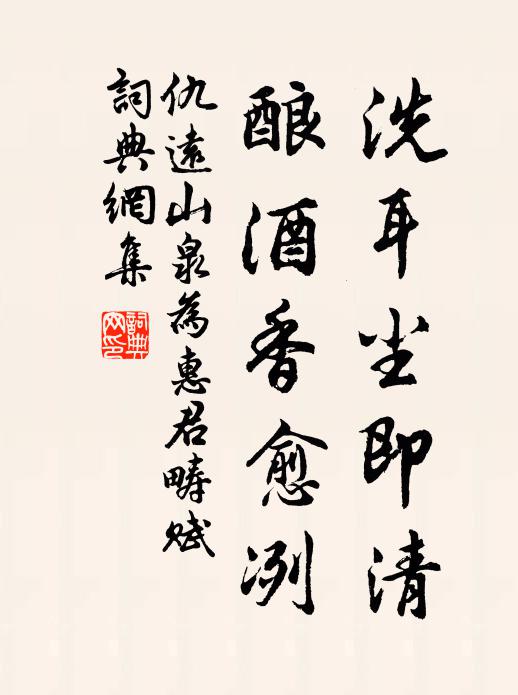 洗耳尘即清
酿酒香愈冽
仇遠山泉為惠君畴賦
詞典網集
詞典網印